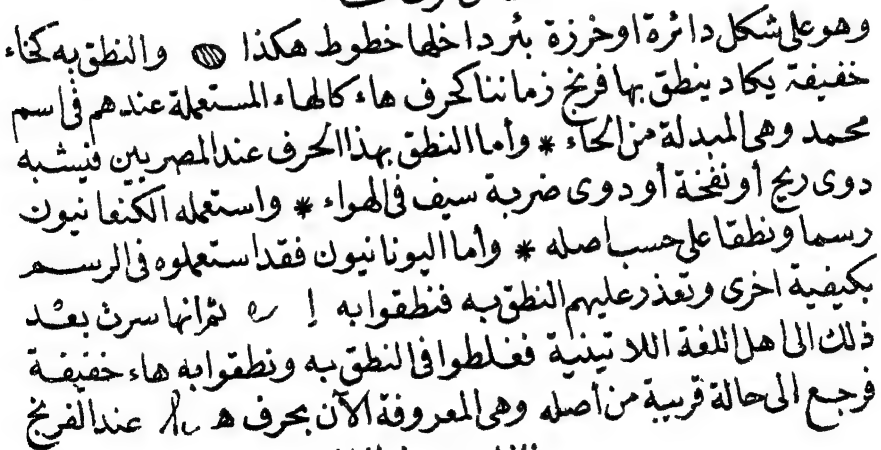 وهو على شكل دائرة او خرزة بئر داخلها خطوط هكذا والنطق به كخاء
خفيفة يكاد ينطق بها فرنج زماننا كحرف هاء كالهاء المستعملة عندهم فى اسم
محمد وهى المبدلة من الحاء * وأما النطق بهذا الحرف عند المصريين فيشبه
دوى ريح أو نفخة أو دوى ضربة سيف فى الهواء * واستعمله الكنعانيون
رسما ونطقا على حسب اصله * وأما اليونانيون فقد استعملوه فى الرسم
بكيفية اخرى وتعذر عليهم النطق به فنطقوا به إ ثم انها سرت بعد
ذلك الى اهل اللغة اللاتينية فغلطوا فى النطق به ونطقوا به هاء خفيفة
فرجع الى حالة قريبة من أصله وهى المعروفة الآن بحرف ه عند الفرنج